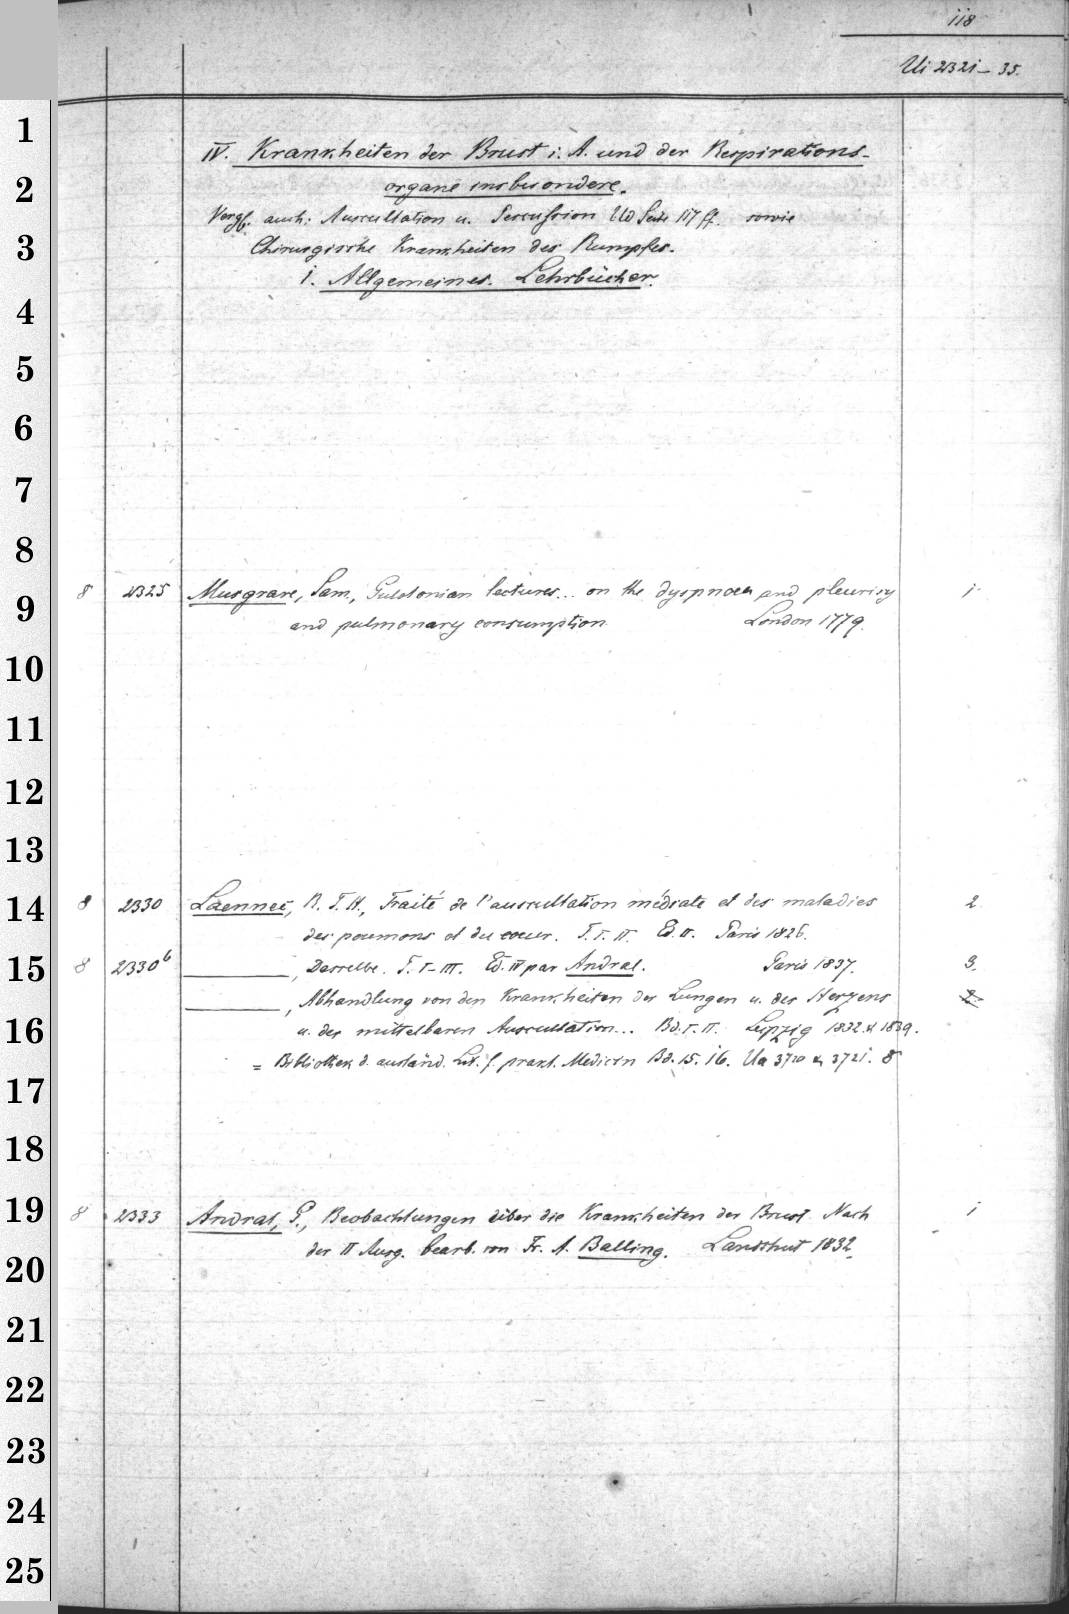 118
Ui 2321-35.
1
IV. Krankheiten der Brust i. A. und der Respirations-
2
organe insbesondere.
Vergl. auch: Auscultation u. Percussion Ud Seite 117 ff. sowie
3
Chirurgische Krankheiten des Rumpfes.
1. Allgemeines. Lehrbücher.
4
5
6
7
8
8 2325 Musgrave, Sam., Gulstonian lectures... on the dyspnoea and pleurisy 1
9
and pulmonary consumption London 1779.
10
11
12
13
8 2330 Laennec, R. T. H., Traité de l'auscultation médiate et des maladies 2
14
des poumons et du coeur. T. I. II. Ed. II. Paris 1826.
15
8 2330b ______, Dasselbe. T. I-III. Ed. IV par Andral. Paris 1837. 3.
______, Abhandlung von den Krankheiten der Lungen u. des Herzens 2
16
u. der mittelbaren Auscultation... Bd. I. II. Leipzig 1832 & 1839.
= Bibliothek d. ausländ. Lit. f. prakt. Medicin Bd. 15. 16. Ua 3720 & 3721. 8
17
18
19
8 2333 Andral, G., Beobachtungen über die Krankheiten der Brust. Nach 1
der II Ausg. bearb. von Fr. A. Balling. Landshut 1832.
20
21
22
23
24
25